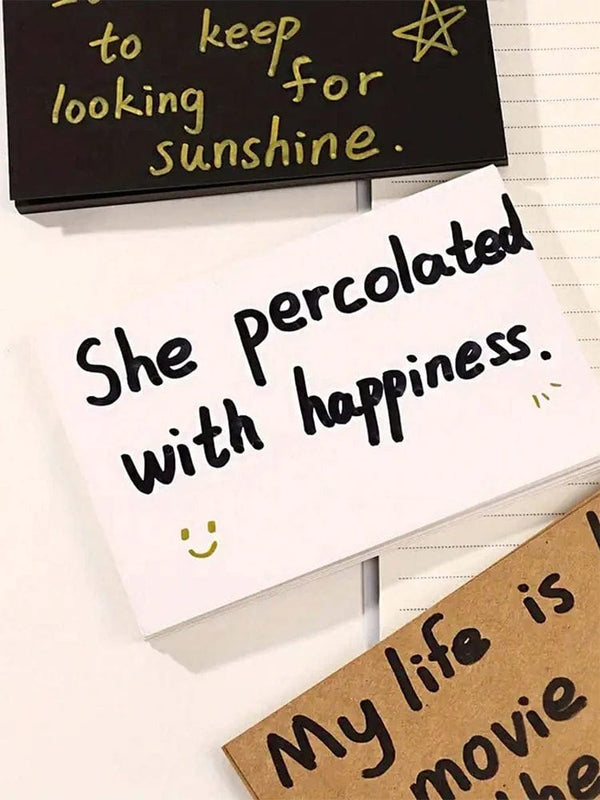 to keep
looking for
sunshine.
She percolated
with happiness.
My life is
movie
the